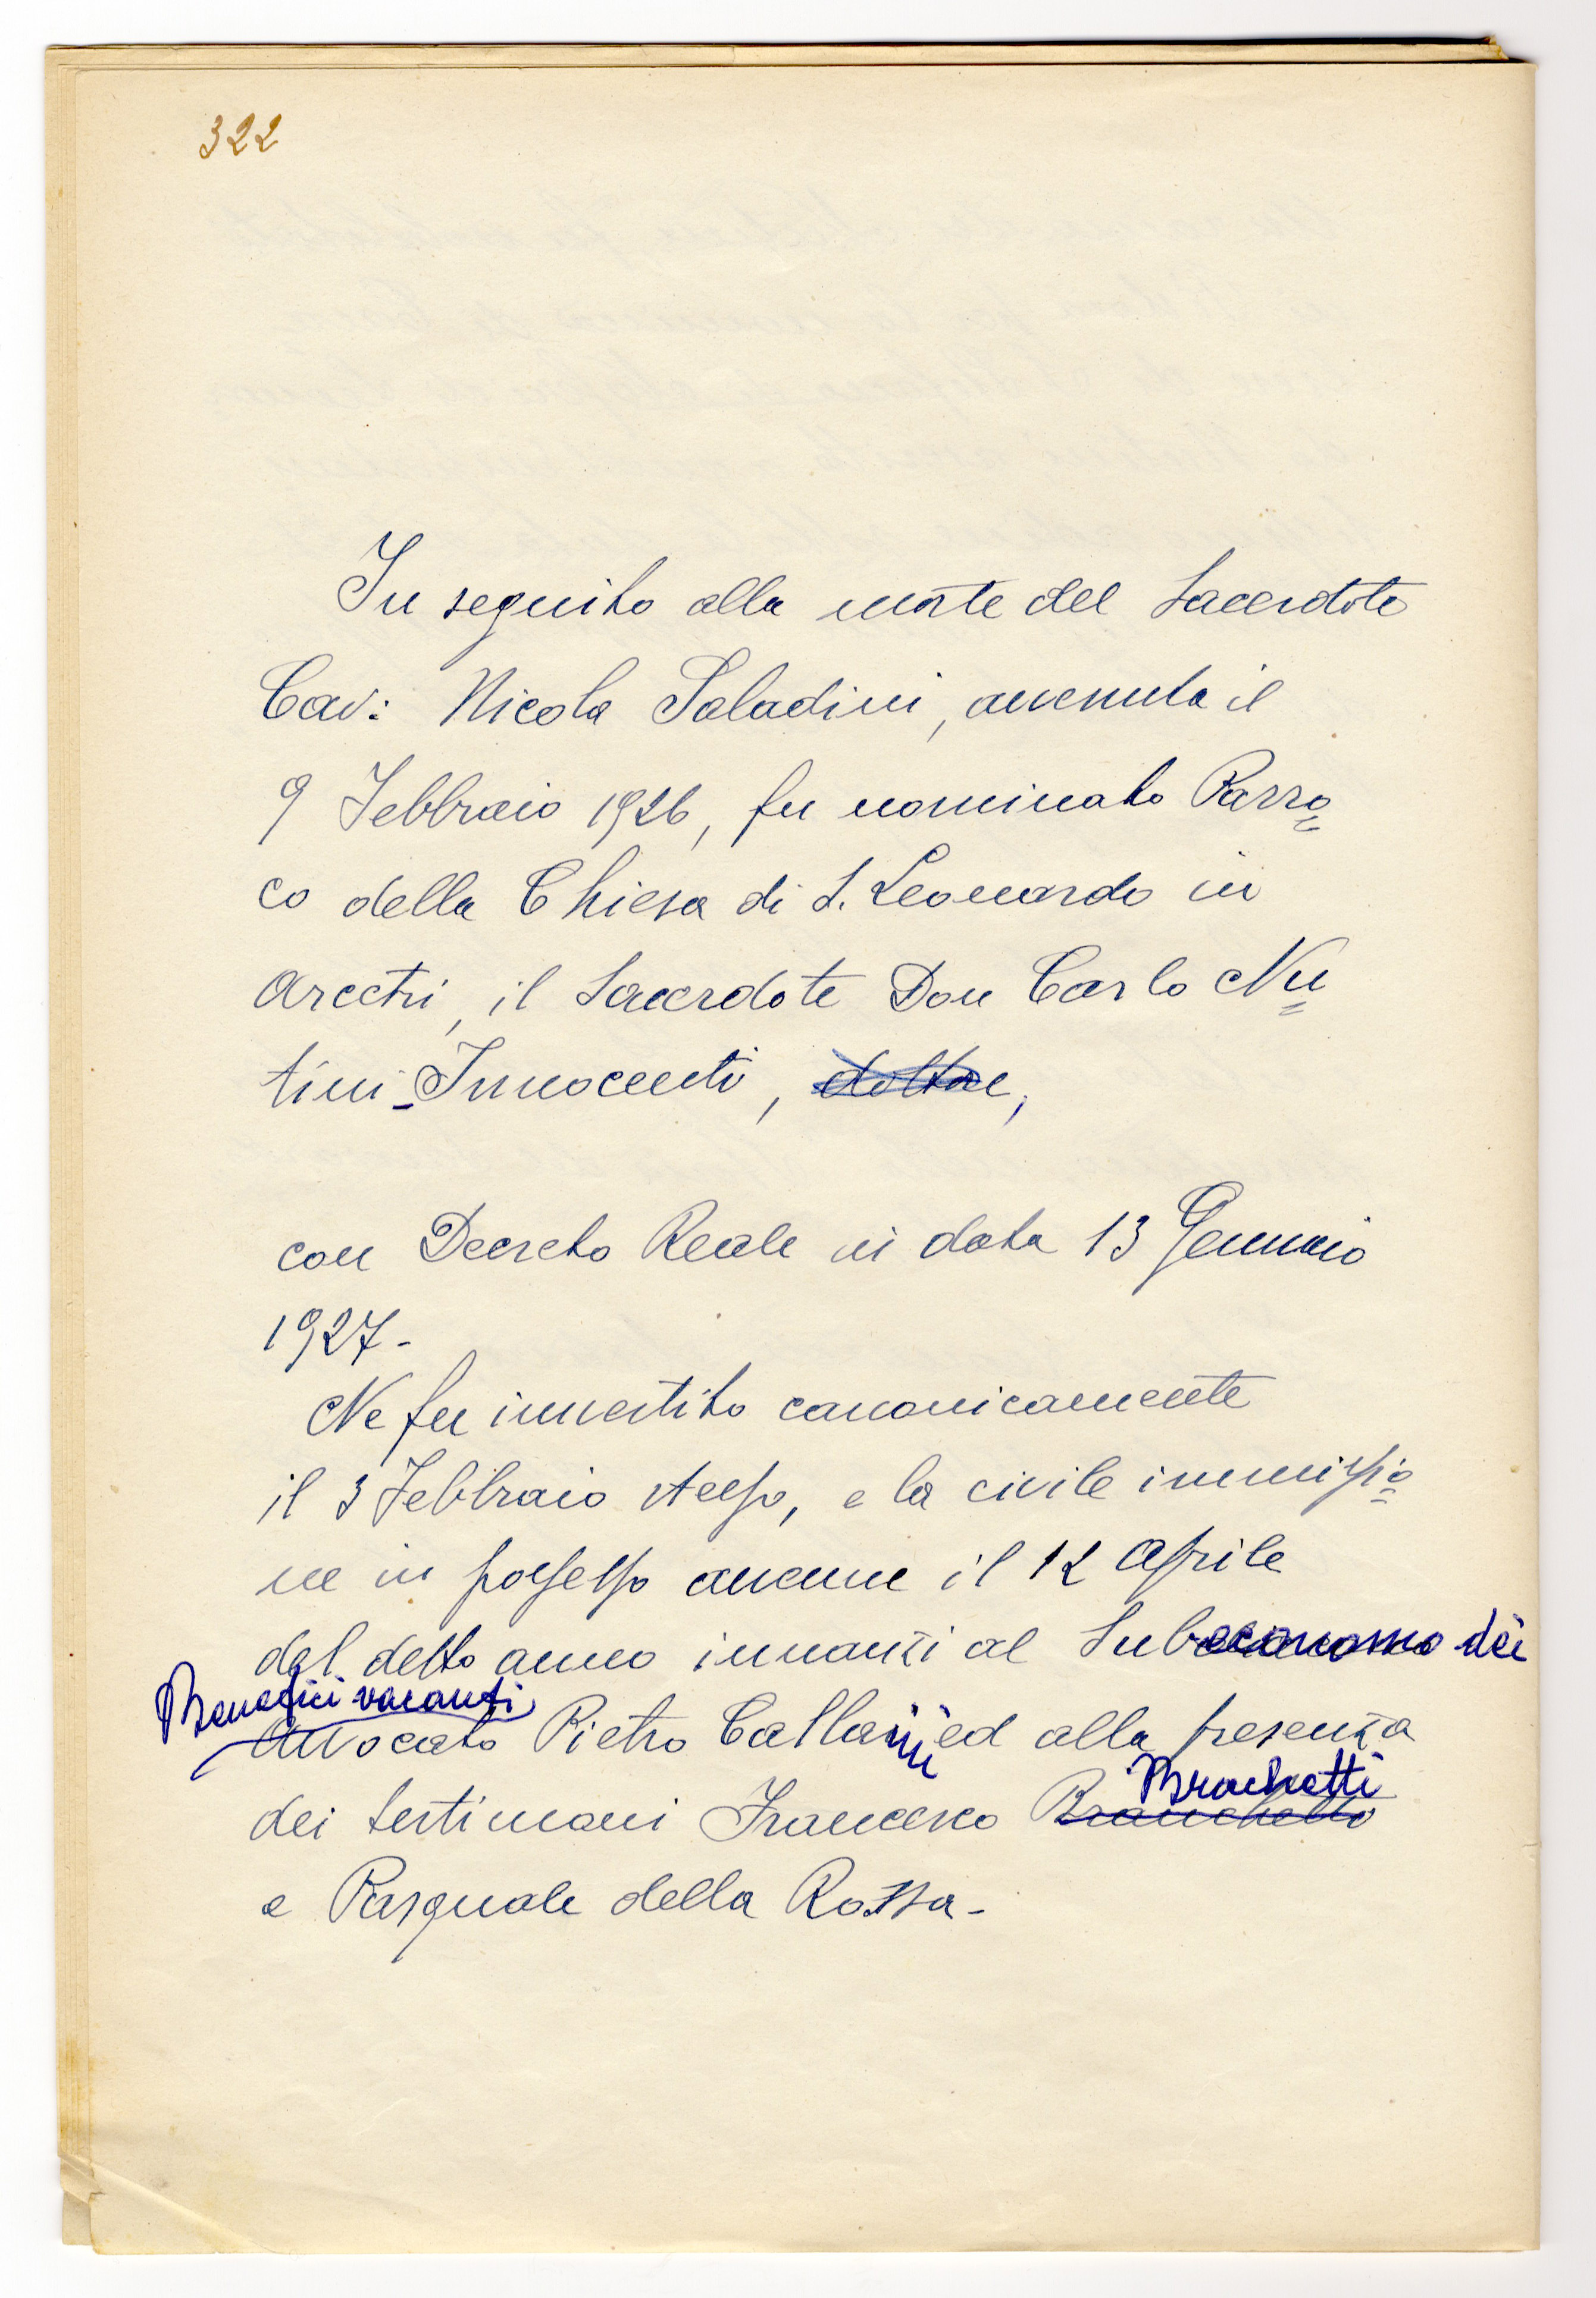 322
In seguito alla morte del Sacerdote
Cav: Nicola Paladini, avvenuta il
9 Febbraio 1926, fu nominato Parro=
co della Chiesa di S. Leonardo in
Arcetri, il Sacerdote Don Carlo Nu=
tini-Innocenti,
con Decreto Reale in data 13 Gennaio
1927-
Ne fu investito canonicamente
il 3 Febbraio stesso, e la civile immissio=
ne in possesso avenne il 12 Aprile
del detto anno innanzi al Subeconomo dei
Benefici vacanti
Avvocato Pietro Callaini ed alla presenza
Brachetti
dei testimoni Francesco Branchetto
e Pasquale della Rossa-